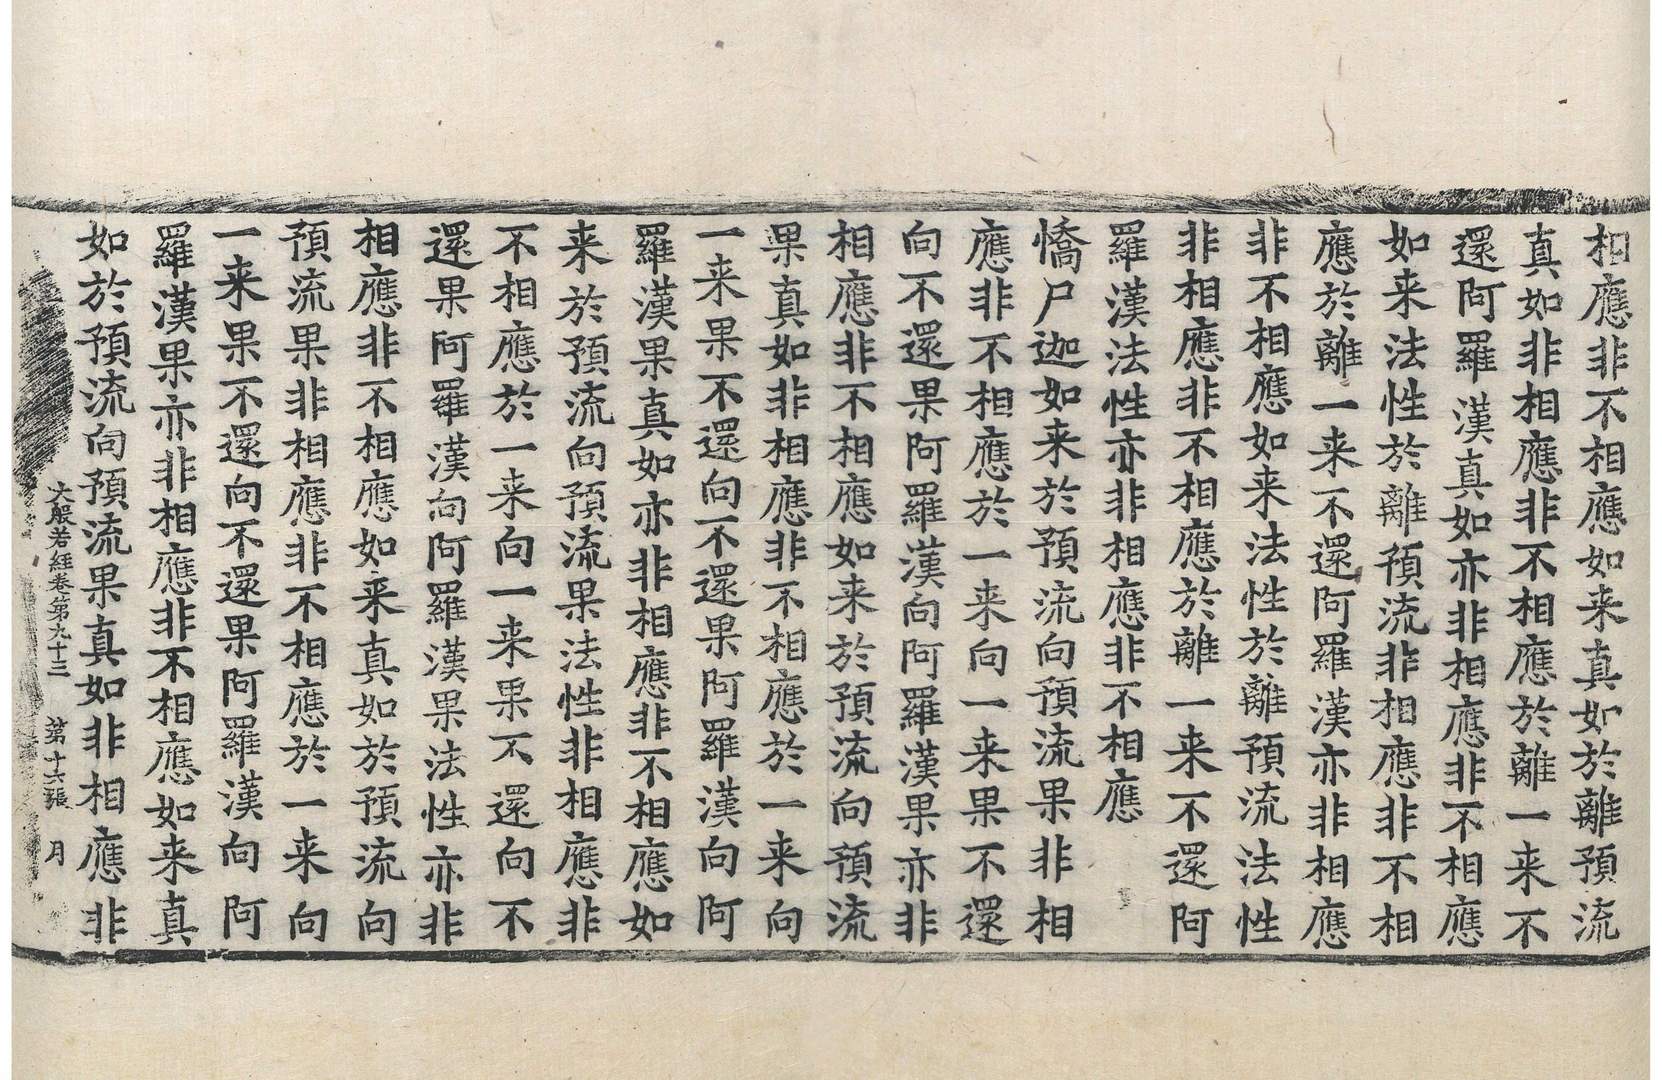 相應非不相應如来真如於離預流
真如非相應非不相應於離一来不
還阿羅漢真如亦非相應非不相應
如来法性於離預流非相應非不相
應於離一来不還阿羅漢亦非相應
非不相應如来法性於離預流法性
非相應非不相應於離一来不還阿
羅漢法性亦非相應非不相應
憍尸迦如来於預流向預流果非相
應非不相應於一来向一来果不還
向不還果阿羅漢向阿羅漢果亦非
相應非不相應如来於預流向預流
果真如非相應非不相應於一来向
一来果不還向不還果阿羅漢向阿
羅漢果真如亦非相應非不相應如
来於預流向預流果法性非相應非
不相應於一来向一来果不還向不
還果阿羅漢向阿羅漢果法性亦非
相應非不相應如来真如於預流向
預流果非相應非不相應於一来向
一来果不還向不還果阿羅漢向阿
羅漢果亦非相應非不相應如来真
如於預流向預流果真如非相應非
大般若經卷第九十三 第十六張 月